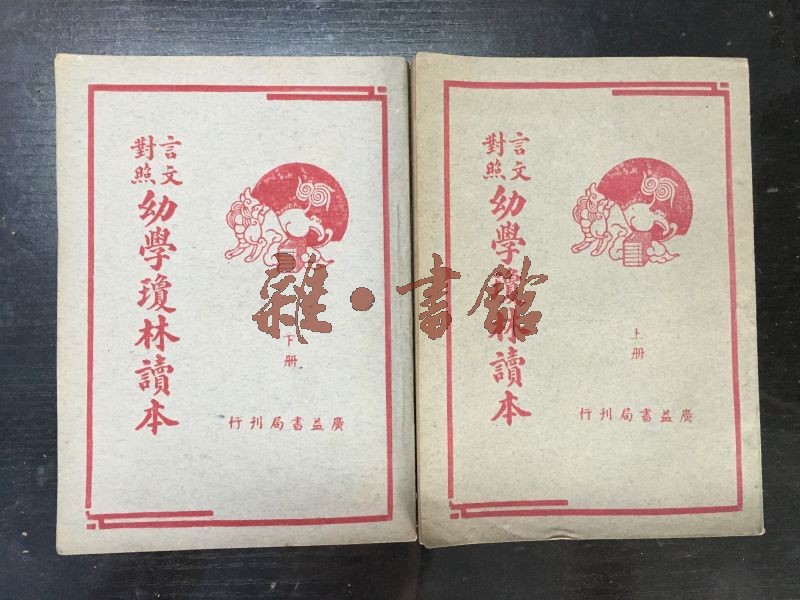 言文
對照
幼學瓊林讀本
下册
廣益書局刊行
言文
對照
幼學瓊林讀本
上册
廣益書局刊行
雜·書館